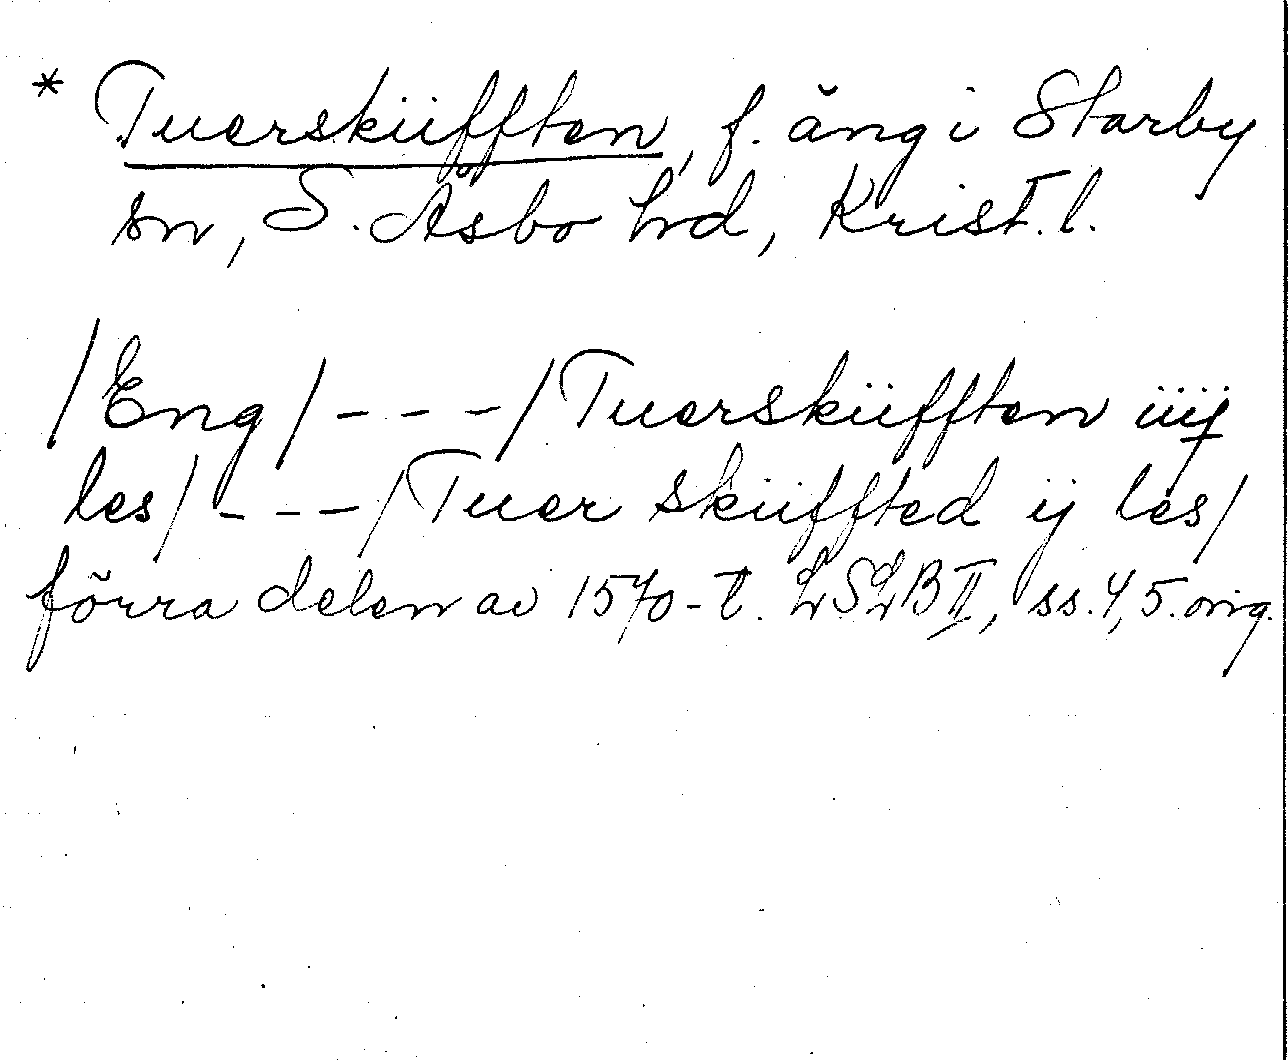 * Tuerskiifften, f. äng i Starby
sn, S. Åsbo hd, Krist. l.
/Eng/---/Tuerskiifften iiij
les/---/Tuer skiiffted ij les/
förra delen av 1570-t. LSLB II, ss. 4, 5. orig.